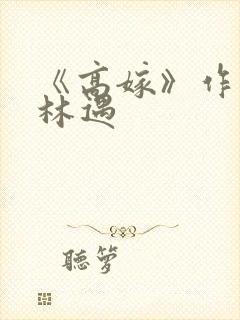 《高嫁》作
林遇
聽箩